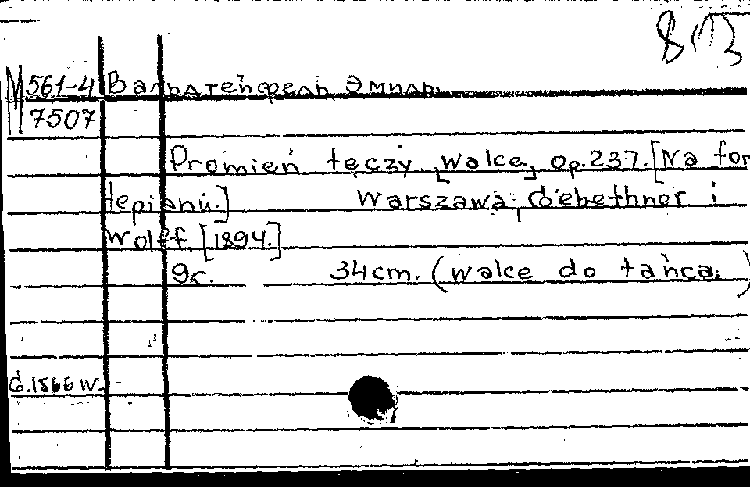 803
М 561-4 Вальдтейфель Эмиль
7507
Promień tęczy [walce] Op. 237. [Na for
tepianu.] Warszawa, Gebethner i
Wolff. [1894.]
9с. 34cm. (walce do tańca)
G.1566 W.